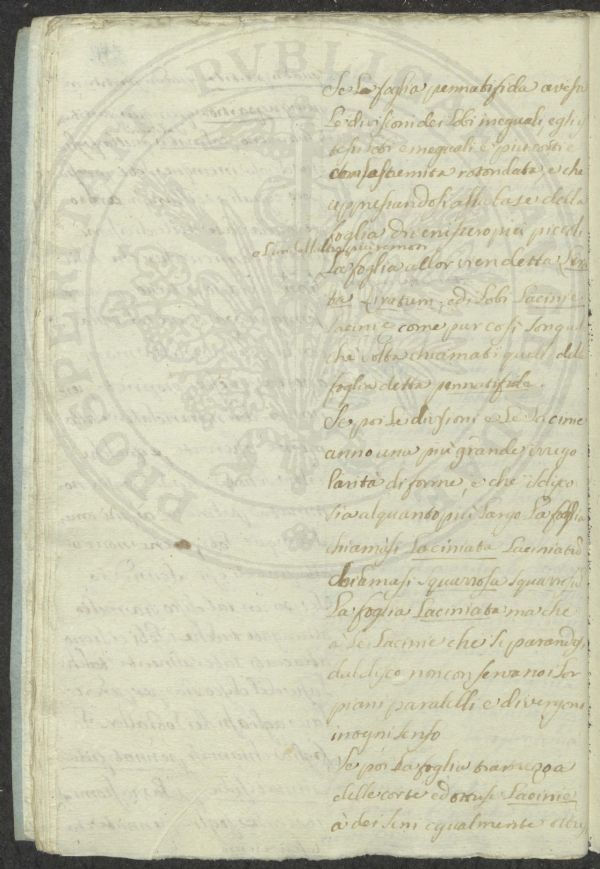 Se la foglia pennatifida avesse
le divisioni dei lobi ineguali, egli
e ineguali e piu corti e
con l'astremità rotondata, e che
appressandosi alla base della
foglia divenissero piu piccoli
piu remoti
La foglia allor vien detta Lira
ta Liratum, ed i lobi Lacinie
lacinie come pur così son qual
che volta chiamati quei della
foglia detta pennatifida.
Se poi le divisioni e le lacinie
anno una piu grande irrego
larità di forme, e che il disco
sia alquanto piu largo la foglia
chiamasi Laciniata
chiamasi squarrosa squarrosum
La foglia Laciniata ma che
à le Lacinie che separandosi
dal disco non conservano i lor
piani paralelli e divergono
in ogni senso
Se poi la foglia tramezza
delle corte ed ottuse Lacinie
à dei seni egualmente ottusi
PROSPERITÉ PUBLICA